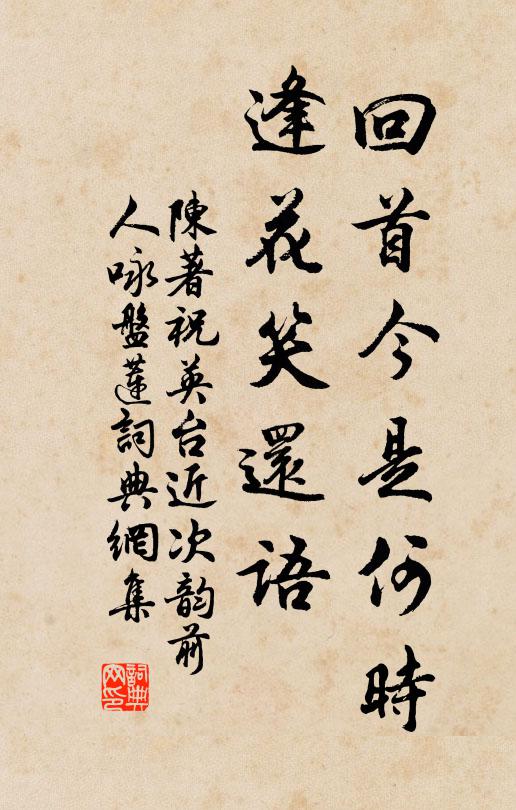 回首今是何時
逢花笑還語
陳著祝英台近次韵前
人咏盤蓮詞典網集
詞典
网印